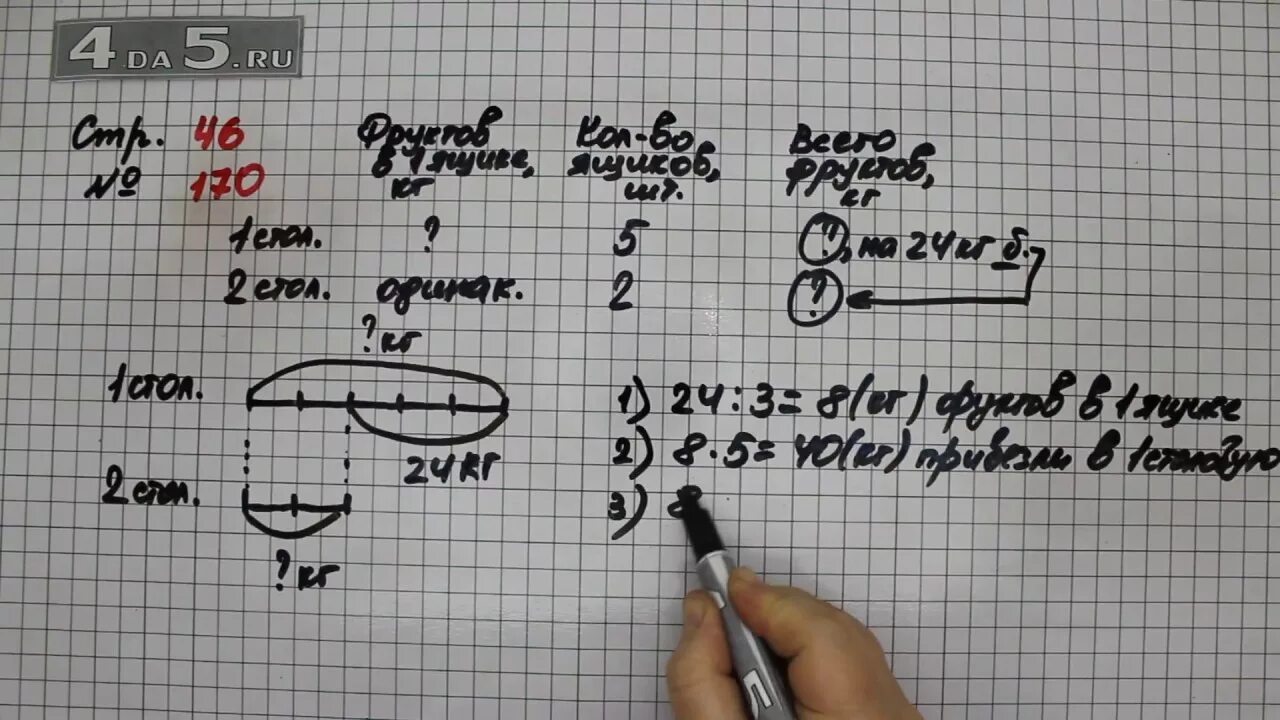 4DA5.RU
Стр. 46
№ 170
Фруктов в 1 ящике, кг
Кол-во ящиков, шт.
Всего фруктов, кг
1 стол. ? 5 ?, на 24 кг б.
2 стол. одинак. 2 ?
? кг
1 стол.
24 кг
2 стол.
? кг
1) 24 : 3 = 8 (кг) фруктов в 1 ящике
2) 8 · 5 = 40 (кг) привезли в 1 столовую
3) 8